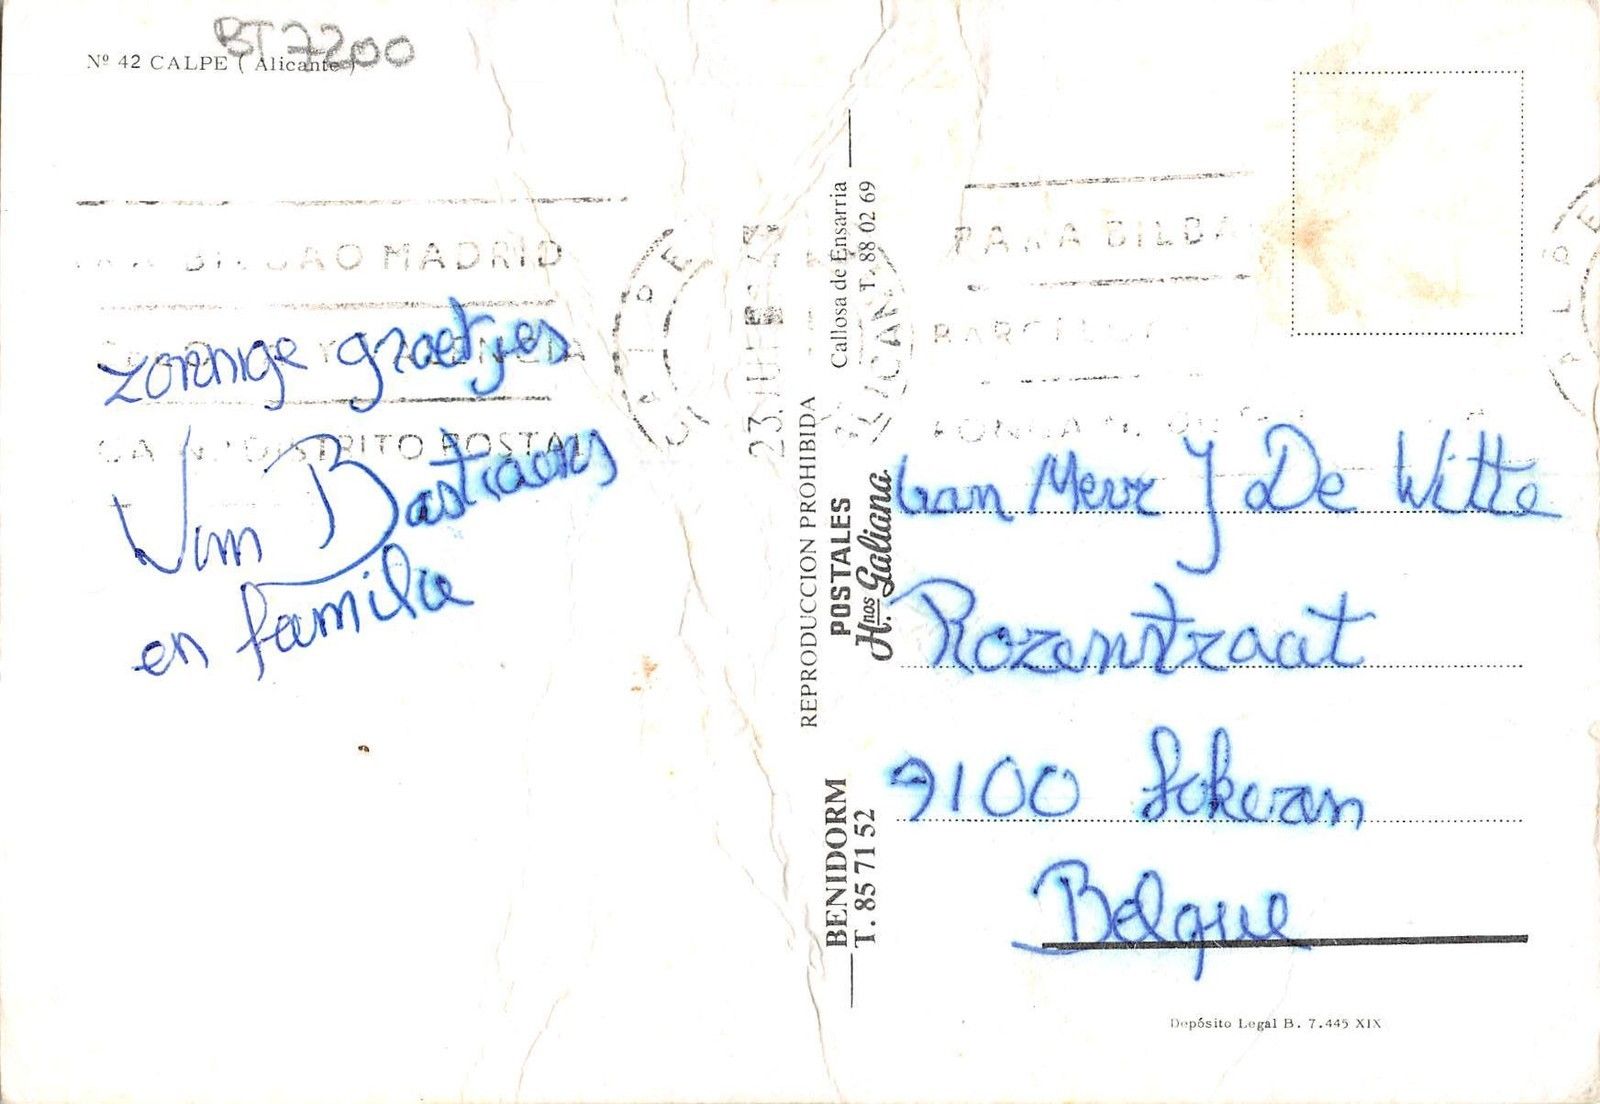 BT7200
Nº 42 CALPE (Alicante)
BILBAO MADRID
Y VALENCIA
DISTRITO POSTAL
zonnige groetjes
Van Bastiaens
en familie
CALPE
23. JUL
ALICANTE
PARA BILBAO
BARCELONA
PONGA N. DISTRITO
Callosa de Ensarria
T. 88 02 69
REPRODUCCION PROHIBIDA
POSTALES
H.nos Galiana
BENIDORM
T. 85 71 52
aan Mevr J De Witte
Rozenstraat
9100 Lokeren
Belgïe
Depósito Legal B. 7.445 XIX